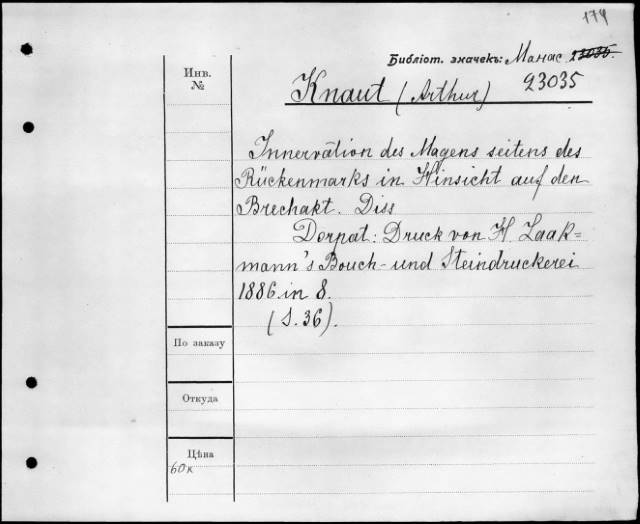 174
Библіот. значекъ: Манас. 23035.
Инв. №
Knaut (Arthur) 23035
Innervation des Magens seitens des
Rückenmarks in Hinsicht auf den
Brechakt. Diss
Dorpat: Druck von H. Laak=
mann's Bouch- und Steindruckerei
1886. in 8.
(S. 36).
По заказу
Откуда
Цѣна
60к